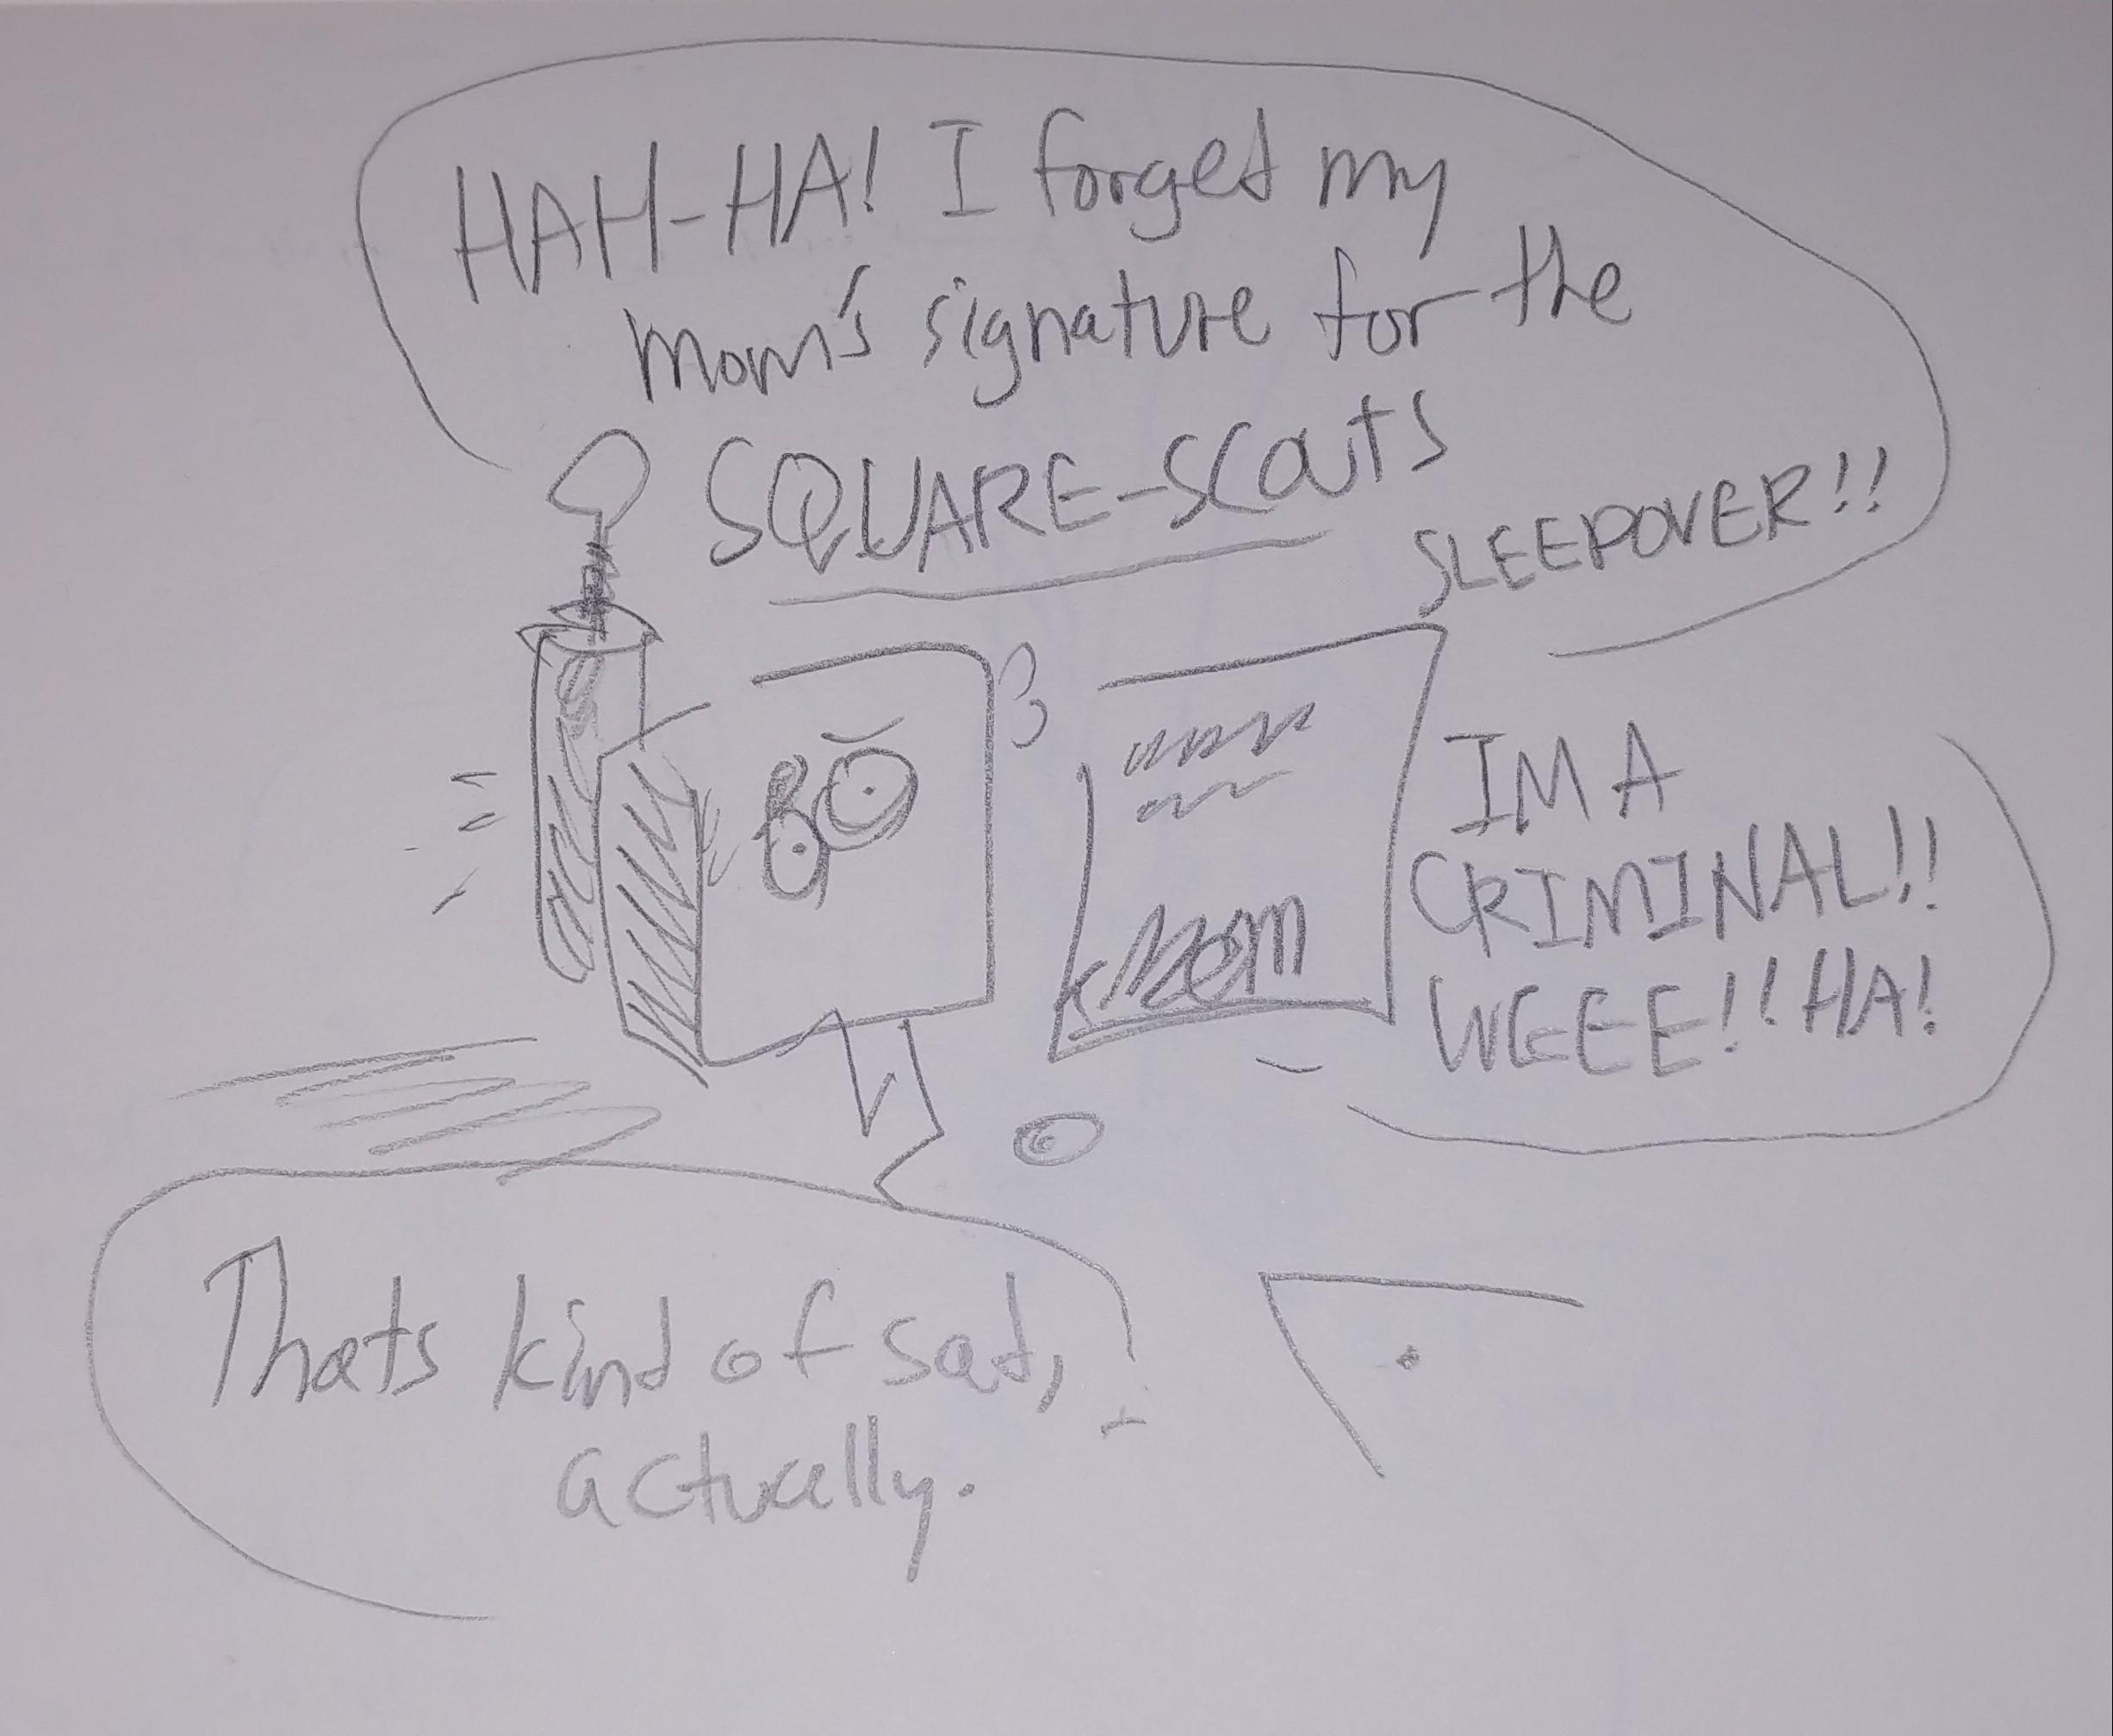 HAH-HA! I forget my
mom's signature for the
SQUARE-SCOUTS
SLEEPOVER!!
Mom
IM A
CRIMINAL!!
WEEE!! HA!
Thats kind of sad,
actually.